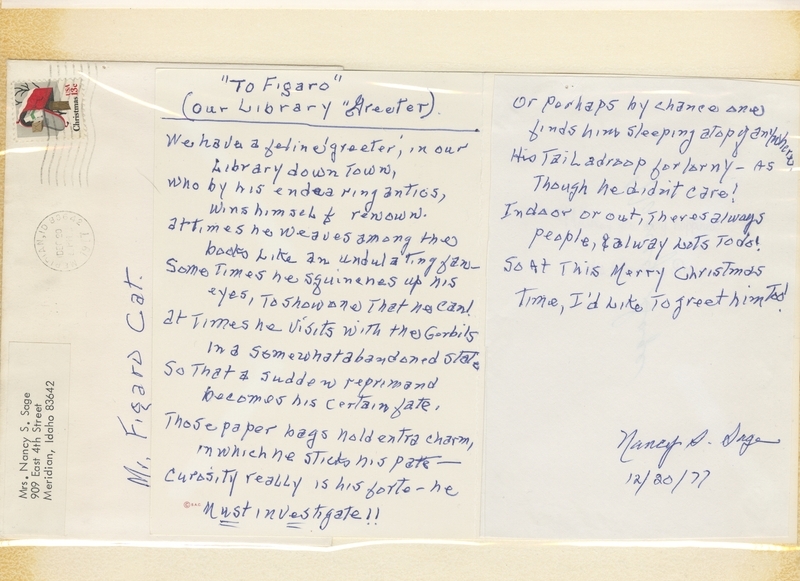 USA 13c
Christmas
MERIDIAN, ID 83642
Mrs. Nancy S. Sage
909 East 4th Street
Meridian, Idaho 83642
Mr. Figaro Cat.
"To Figaro"
(Our Library "Greeter").
We have a feline 'greeter', in our
Library down Town,
Who by his endearing antics,
wins himself renown.
At times he weaves among the
books Like an undulating fan—
Some Times he squinches up his
eyes, To show one That he can!
At Times he visits with the Gerbils
In a somewhat abandoned State
So That a sudden reprimand
becomes his certain fate.
Those paper bags hold extra charm,
in which he sticks his pate—
Curosity really is his forte— he
Must investigate!!
Or perhaps by chance one
finds him sleeping atop of anywhere,
His Tail adroop forlorny— As
Though he didn't care!
Indoor or out, Theres always
people, & alway Lots To do!
So At This Merry Christmas
Time, I'd Like To greet him Too!
Nancy S. Sage
12/20/77